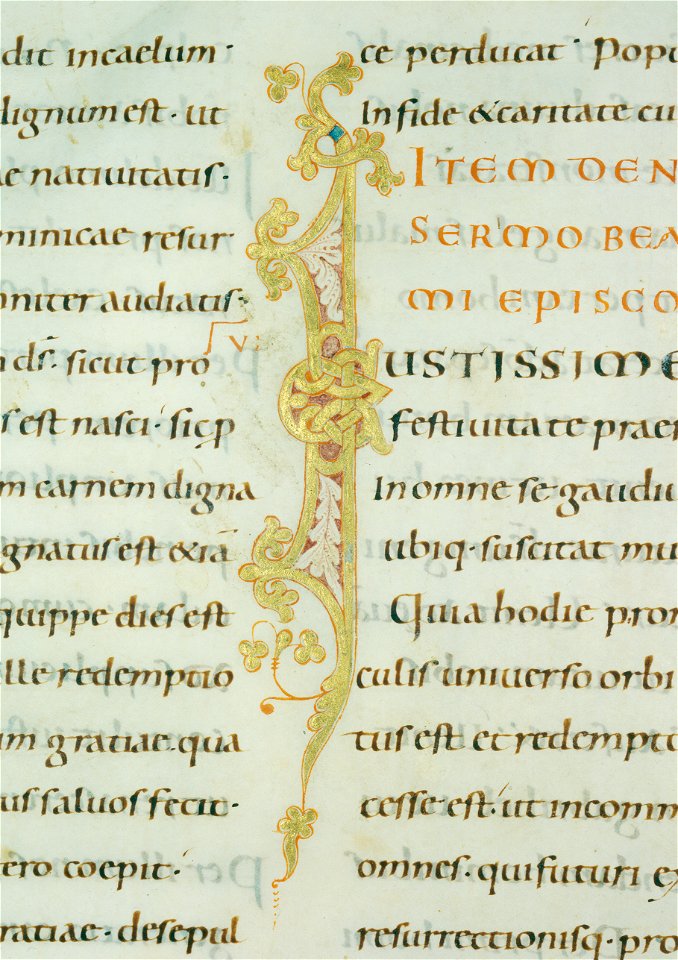 dit incaelum·
dignum est· ut
e natiuitatis·
minicae resur
niter audiatis·
v
n ds̄· sicut pro
s est nasci· sic p̱
m carnem digna
gnatus est & iā
quippe dies est
lle redemptio
m gratiae· qua
us saluos fecit·
ero coepit·
ratiae· desepul
ce perducat· Popu
In fide & caritate cu
ITEM DE N
SERMO BEA
MI EPISCO
IUSTISSIME
festiuitate prae
In omne se gaudiu
ubiq· suscitat mu
Quia hodie pro
culis uniuerso orbi
tus est et redempt
cesse est· ut incomm
omnes· qui futuri e
resurrectionisq· pro